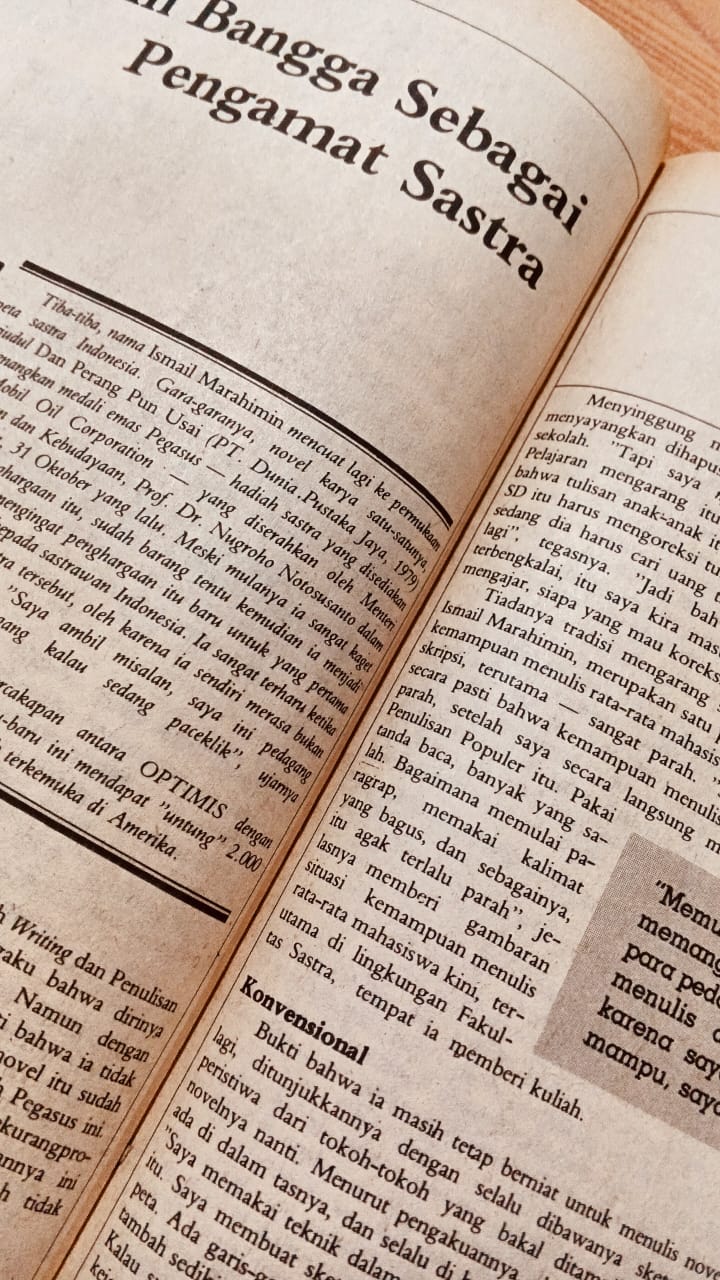 Bangga Sebagai
Pengamat Sastra
Tiba-tiba, nama Ismail Marahimin mencuat lagi ke permukaan
peta sastra Indonesia. Gara-garanya, novel karya satu-satunya,
Dan Perang Pun Usai (PT. Dunia Pustaka Jaya, 1979)
medali emas Pegasus — hadiah sastra yang disediakan
Mobil Oil Corporation — yang diserahkan oleh Menteri
dan Kebudayaan, Prof. Dr. Nugroho Notosusanto dalam
31 Oktober yang lalu. Meski mulanya ia sangat kaget
itu, sudah barang tentu kemudian ia menjadi
mengingat penghargaan itu baru untuk yang pertama
kepada sastrawan Indonesia. Ia sangat terharu ketika
tersebut, oleh karena ia sendiri merasa bukan
"Saya ambil misalan, saya ini pedagang
kalau sedang paceklik", ujarnya
antara OPTIMIS dengan
ini mendapat "untung" 2.000
terkemuka di Amerika.
Writing dan Penulisan
bahwa dirinya
Namun dengan
bahwa ia tidak
novel itu sudah
Pegasus ini
ini
tidak
Menyinggung
menyayangkan
sekolah. "Tapi saya
Pelajaran mengarang itu
bahwa tulisan anak-anak
SD itu harus mengoreksi
sedang dia harus cari uang
lagi", tegasnya. "Jadi
terbengkalai, itu saya kira
mengajar, siapa yang mau
Tiadanya tradisi mengarang
Ismail Marahimin, merupakan satu
kemampuan menulis rata-rata
skripsi, terutama — sangat parah.
secara pasti bahwa kemampuan menulis
parah, setelah saya secara langsung
Penulisan Populer itu. Pakai
tanda baca, banyak yang sa-
lah. Bagaimana memulai pa-
ragrap, memakai kalimat
yang bagus, dan sebagainya,
itu agak terlalu parah", je-
lasnya memberi gambaran
situasi kemampuan menulis
rata-rata mahasiswa kini, ter-
utama di lingkungan Fakul-
tas Sastra, tempat ia memberi kuliah.
memang
para
menulis
karena
mampu,
Konvensional
Bukti bahwa ia masih tetap berniat untuk menulis
lagi, ditunjukkannya dengan selalu dibawanya
peristiwa dari tokoh-tokoh yang bakal
novelnya nanti. Menurut pengakuannya
ada di dalam tasnya, dan selalu di
"Saya memakai teknik dalam
itu. Saya membuat
peta. Ada
tambah
Kalau